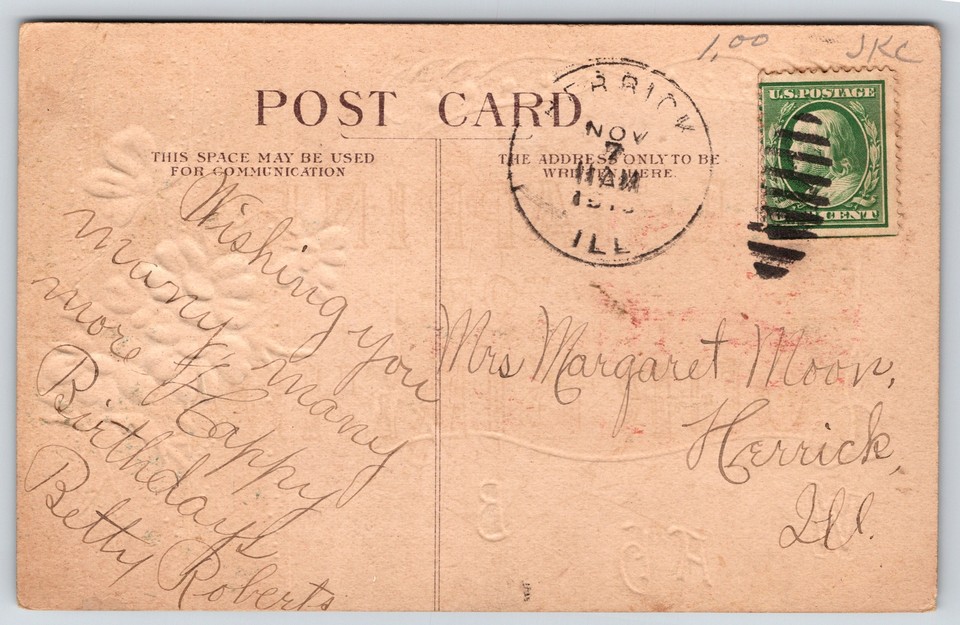 1,00 JKC
POST CARD
THIS SPACE MAY BE USED
FOR COMMUNICATION
THE ADDRESS ONLY TO BE
WRITTEN HERE.
HERRICK
NOV
7
11 AM
ILL
U.S. POSTAGE
CENT
Wishing you
many many
more Happy
Birthdays
Betty Roberts
Mrs Margaret Moon,
Herrick,
Ill.